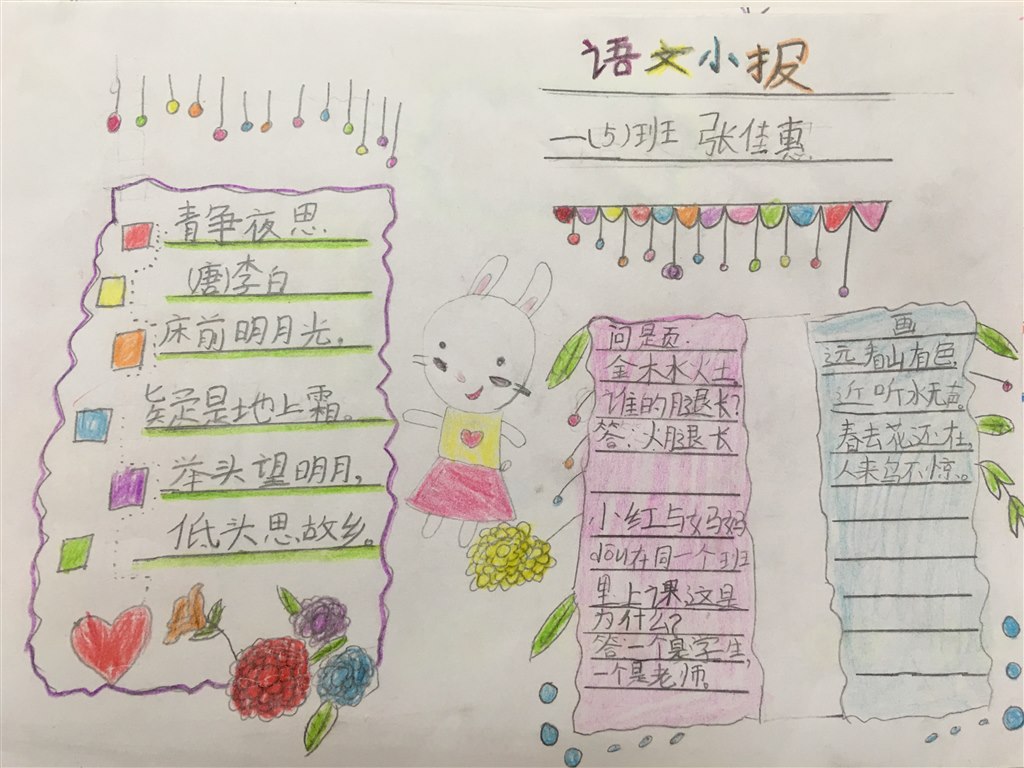 语文小报
一(5)班 张佳惠
青争夜思
(唐)李白
床前明月光,
是地上霜。
举头望明月,
低头思故乡。
问是页.
金木水火土.
谁的腿长?
答:火腿长
小红与妈妈
dou在同一个班
里上课这是
为什么?
答:一个是学生,
一个是老师。
画
远看山有色
近听水无声。
春去花还在,
人来鸟不惊。